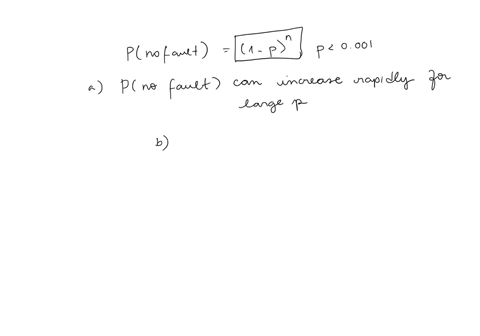 P(no fault) = (1 - p)^n, p < 0.001
a) P(no fault) can increase rapidly for
large p
b)